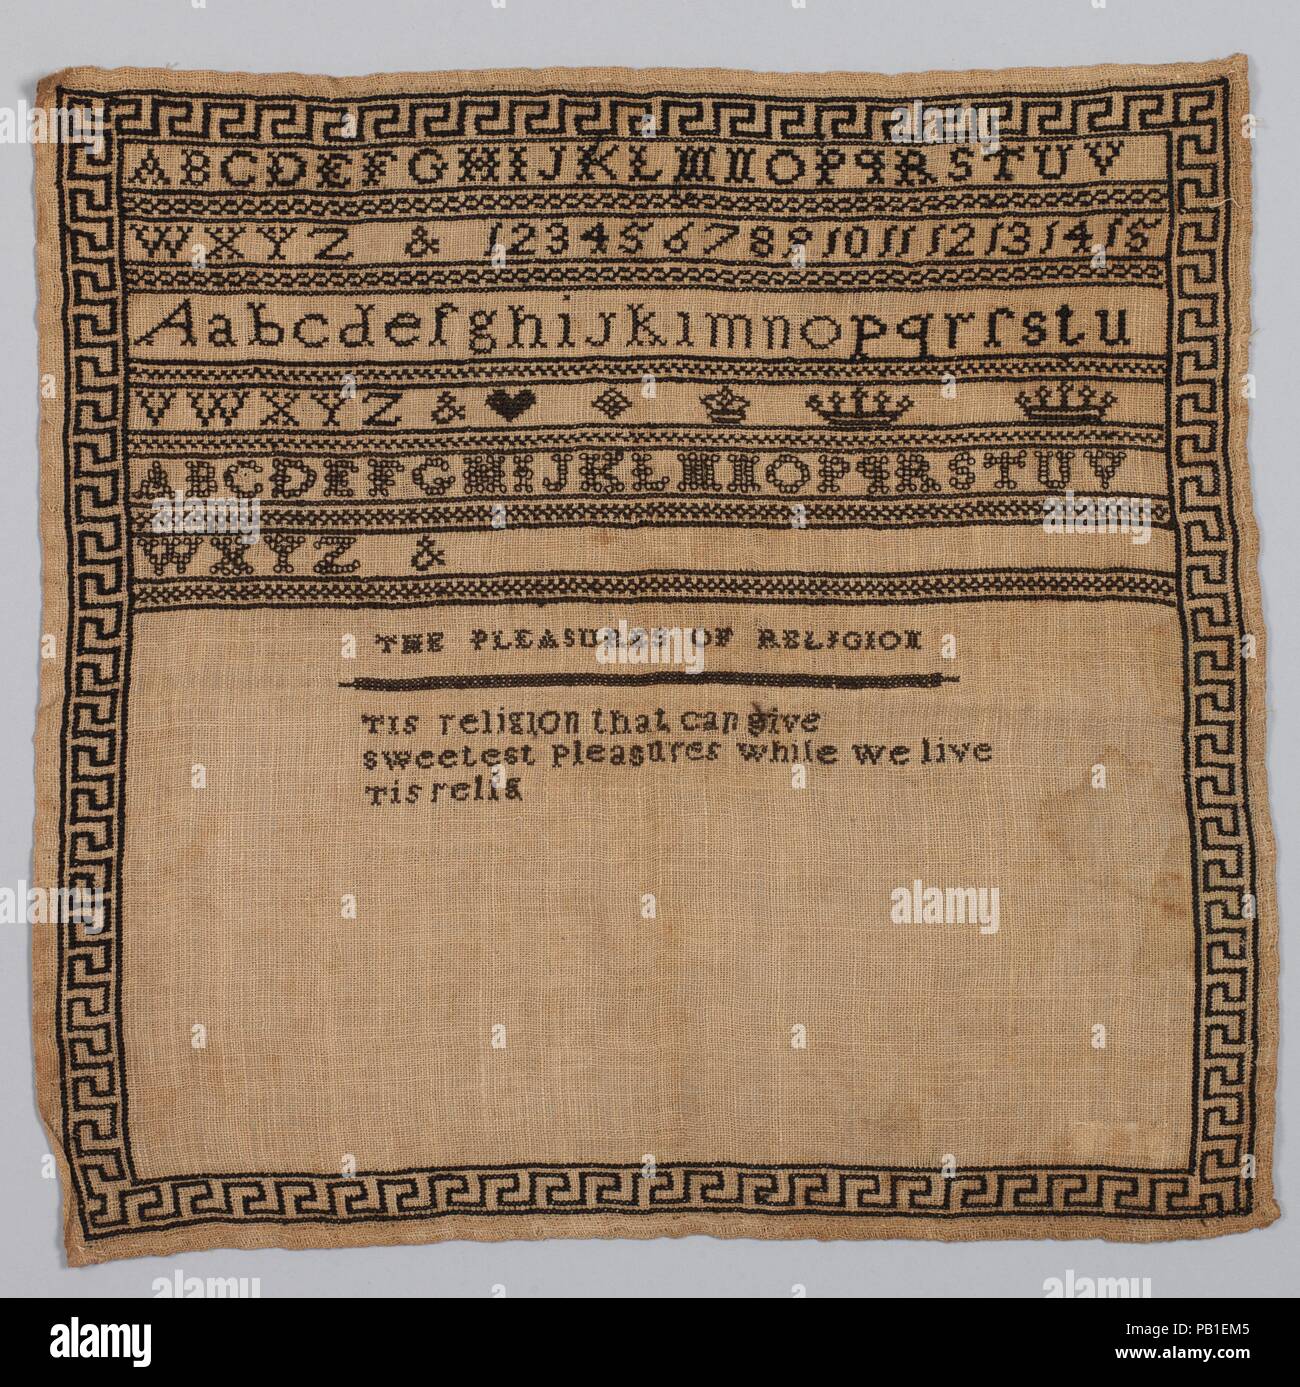 ABCDEFGHIJKLMNOPQRSTUV
WXYZ & 1 2 3 4 5 6 7 8 9 10 11 12 13 14 15
Aabcdefghijklmnopqrrſstu
VWXYZ &
ABCDEFGHIJKLMNOPQRSTUV
WXYZ &
THE PLEASURES OF RELIGION
TIS religion that can give
sweetest pleasures while we live
TIS relig
alamy
alamy stock photo
PB1EM5
www.alamy.com